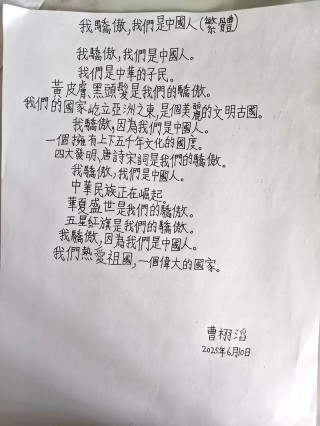 我驕傲,我們是中國人(繁體)
我驕傲,我們是中國人。
我們是中華的子民。
黃皮膚、黑頭髮是我們的驕傲。
我們的國家屹立亞洲之東,是個美麗的文明古國。
我驕傲,因為我們是中國人。
一個擁有上下五千年文化的國度。
四大發明、唐詩宋詞是我們的驕傲。
我驕傲,我們是中國人。
中華民族正在崛起。
華夏盛世是我們的驕傲。
五星紅旗是我們的驕傲。
我驕傲,因為我們是中國人。
我們熱愛祖國,一個偉大的國家。
曹栩滔
2025年6月10日